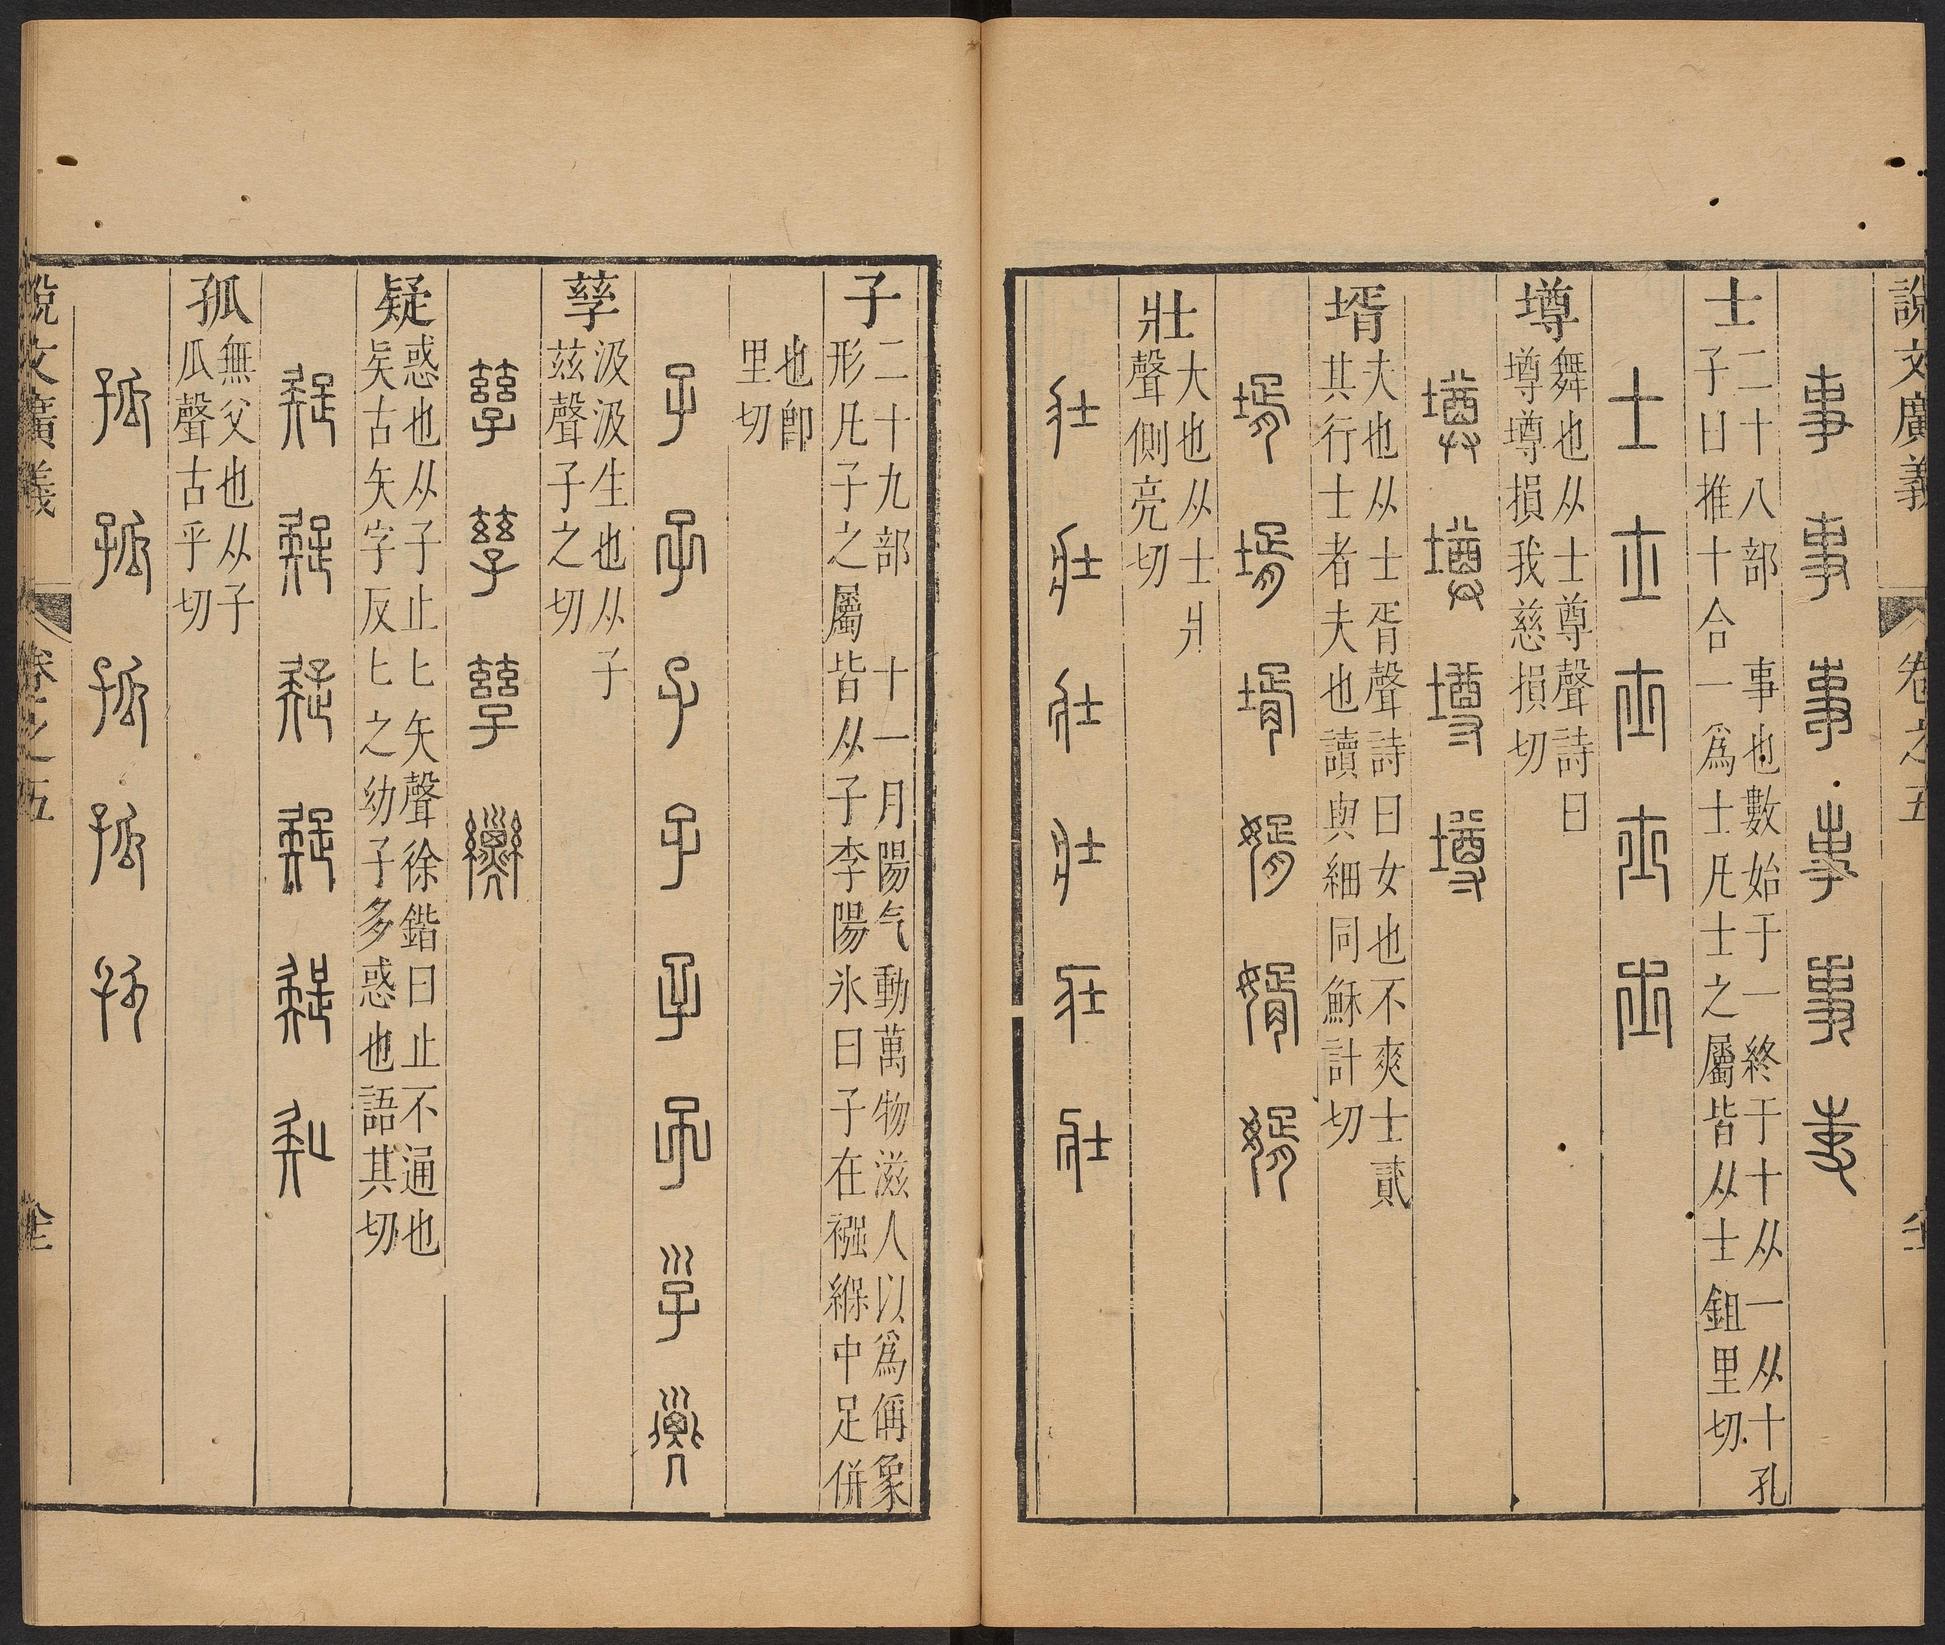 說文廣義
卷之五
事事事事事事
士二十八部 事也數始于一終于十从一从十孔
子曰推十合一爲士凡士之屬皆从士鉏里切
士士士士士
壿舞也从士尊聲詩曰
壿壿損我慈損切
壿壿壿壿
壻夫也从士胥聲詩曰女也不爽士貳
其行士者夫也讀與細同穌計切
壻壻壻壻壻壻
壯大也从士爿
聲側亮切
壯壯壯壯壯壯
子二十九部 十一月陽气動萬物滋人以爲偁象
形凡子之屬皆从子李陽氷曰子在襁緥中足併
也卽
里切
子子子子子子子子
孳汲汲生也从子
茲聲子之切
孳孳孳孳
疑惑也从子止匕矢聲徐鍇曰止不通也
矣古矢字反匕之幼子多惑也語其切
疑疑疑疑疑疑
孤無父也从子
瓜聲古乎切
孤孤孤孤孤
說文廣義
卷之五